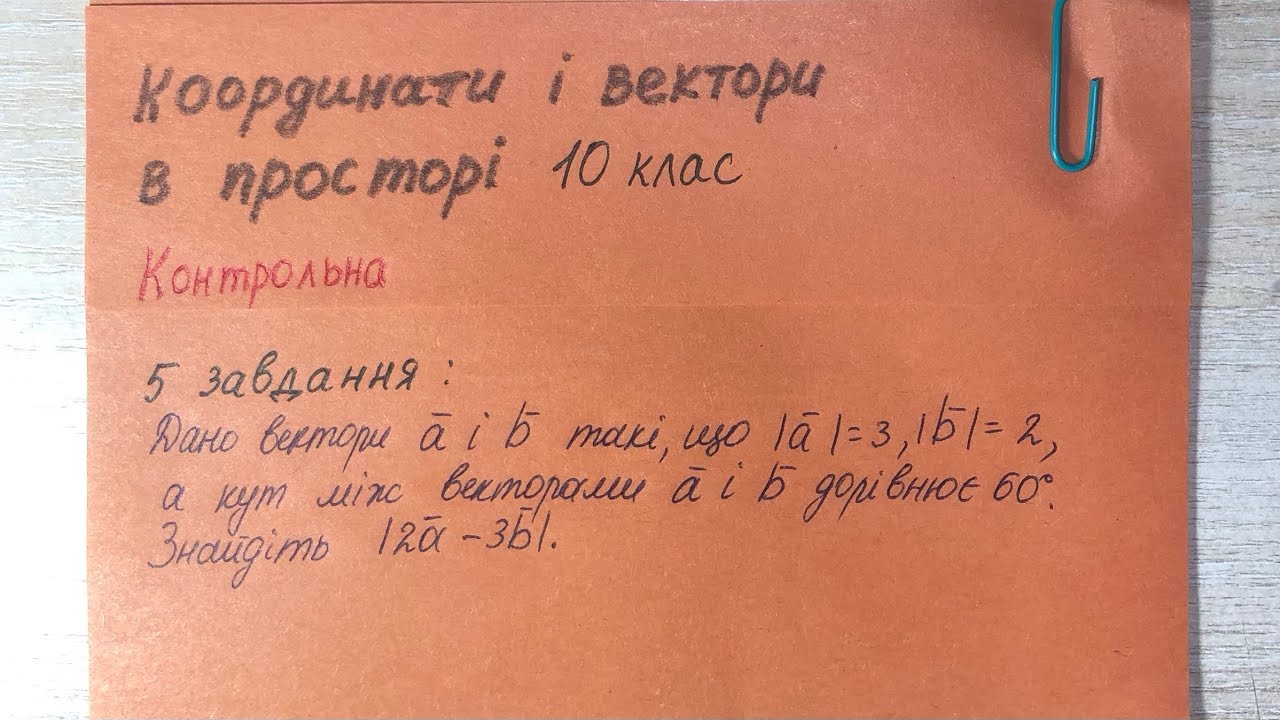 Координати і вектори
в просторі 10 клас
Контрольна
5 завдання :
Дано вектори a̅ і b̅ такі, що |a̅|=3, |b̅|=2,
а кут між векторами a̅ і b̅ дорівнює 60°.
Знайдіть |2a̅-3b̅|.